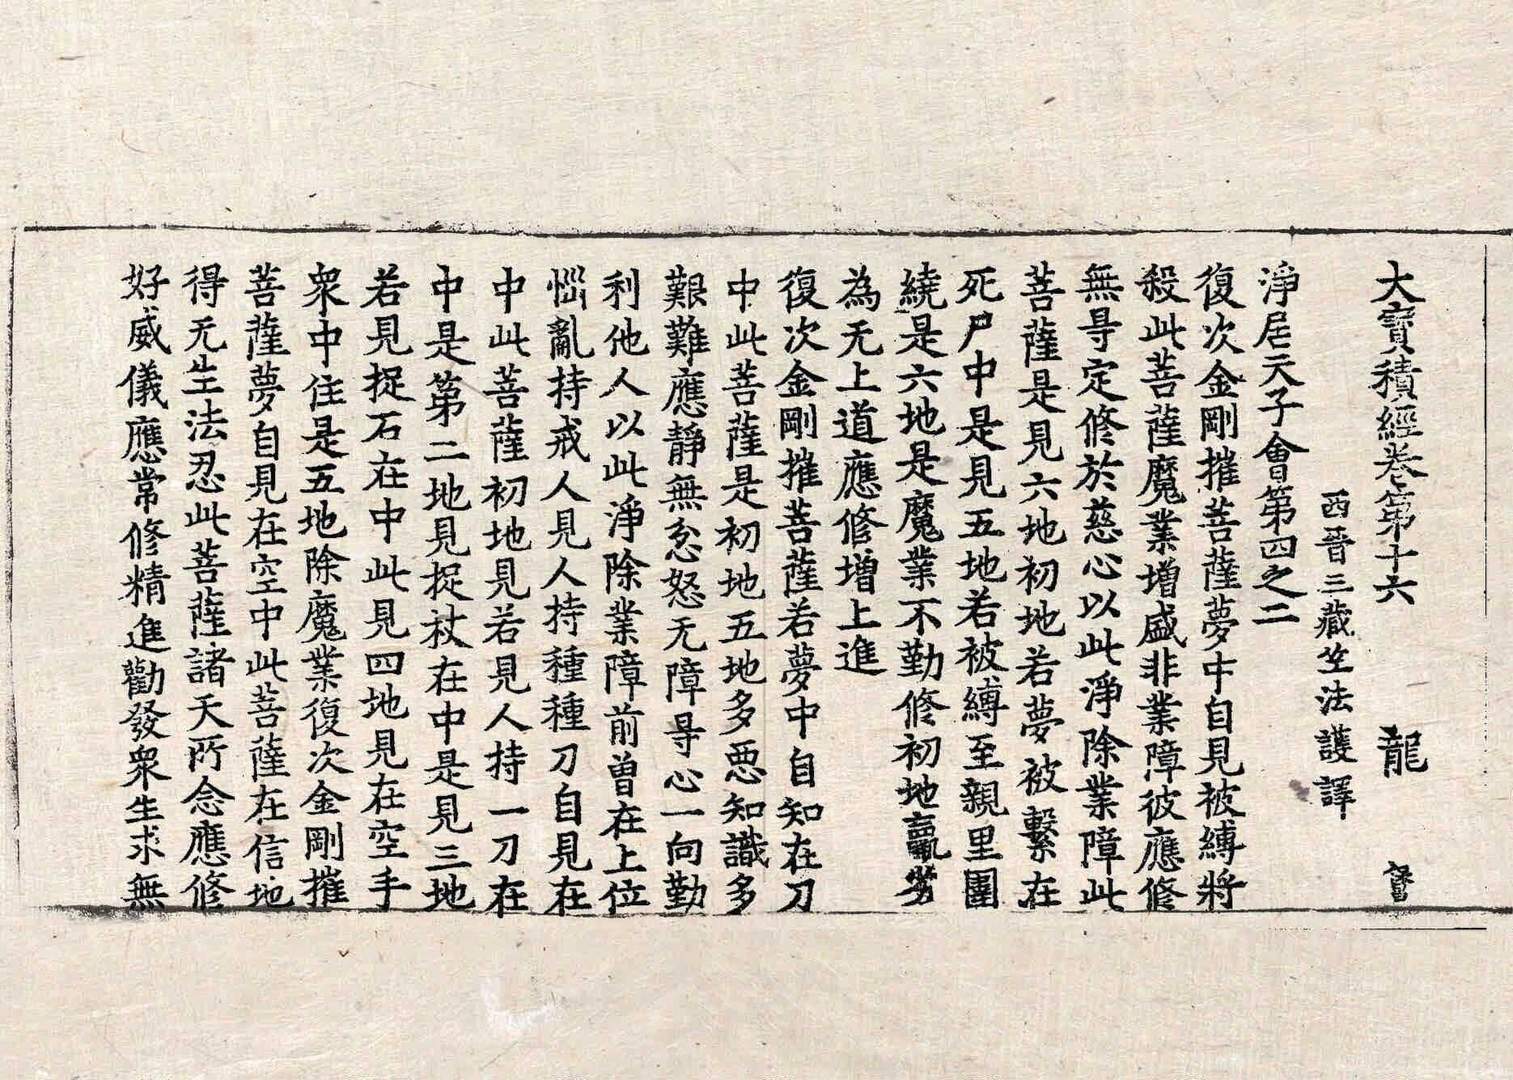 大寶積經卷第十六 龍
西晉三藏竺法護譯
淨居天子會第四之二
復次金剛摧菩薩夢中自見被縛將
殺此菩薩魔業增盛非業障彼應修
無㝵定修於慈心以此淨除業障此
菩薩是見六地初地若夢被繫在
死尸中是見五地若被縛至親里圍
繞是六地是魔業不勤修初地羸劣
為无上道應修增上進
復次金剛摧菩薩若夢中自知在刀
中此菩薩是初地五地多惡知識多
艱難應靜無忿怒无障㝵心一向勤
利他人以此淨除業障前曽在上位
惱亂持戒人見人持種種刀自見在
中此菩薩初地見若見人持一刀在
中是第二地見捉杖在中是見三地
若見捉石在中此見四地見在空手
衆中住是五地除魔業復次金剛摧
菩薩夢自見在空中此菩薩在信地
得无生法忍此菩薩諸天所念應修
好威儀應常修精進勸發衆生求無